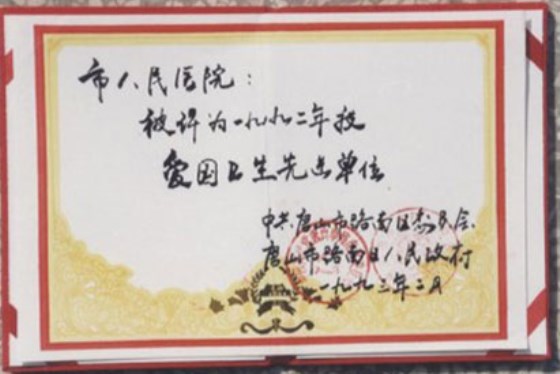 市人民医院：
被评为一九九二年段
爱国卫生先进单位
中共唐山市路南区委员会
唐山市路南区人民政府
一九九三年二月